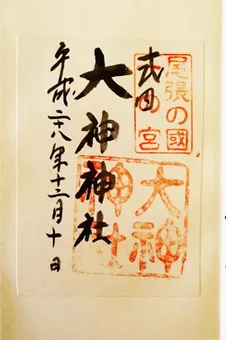 尾張の國
二の宮
式内
大神神社
大神
神社
平成二十八年十二月十日